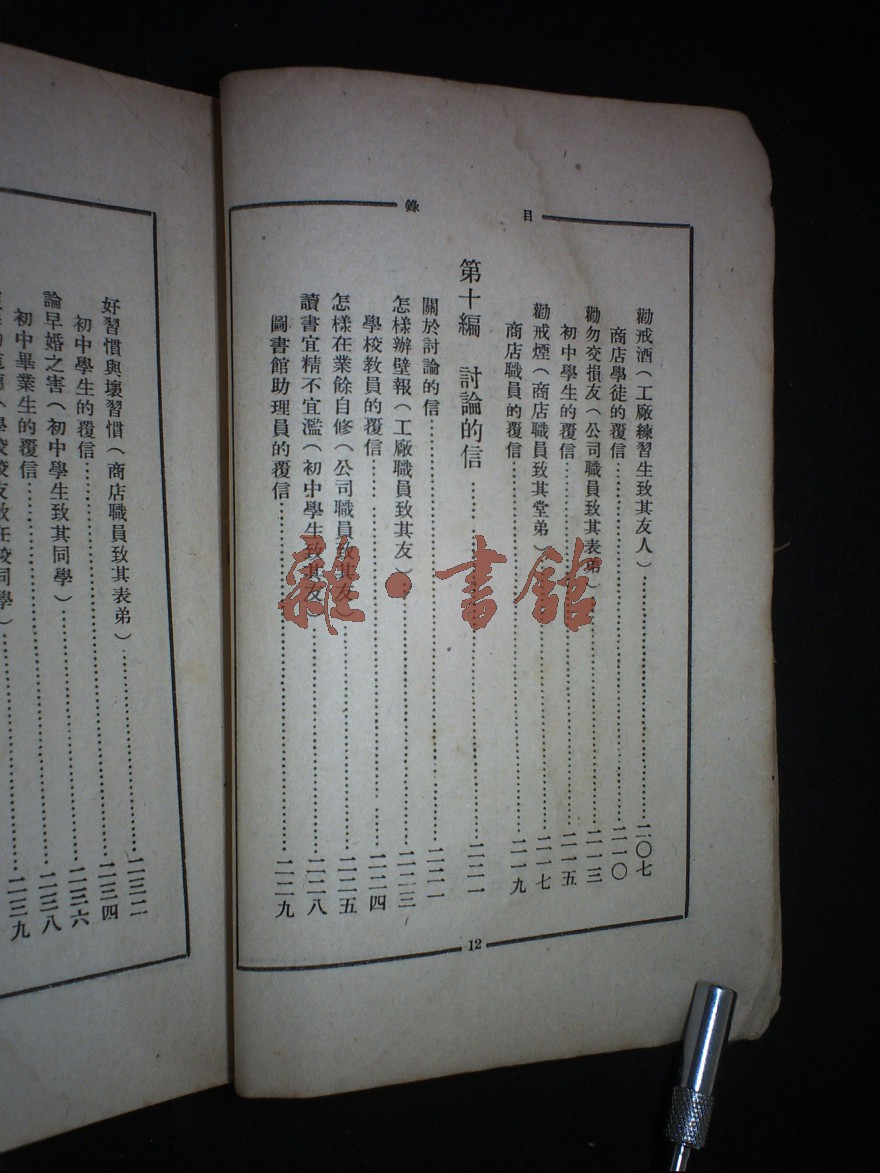 目錄
勸戒酒（工廠練習生致其友人）……二〇七
商店學徒的覆信……二一〇
勸勿交損友（公司職員致其表弟）……二一三
初中學生的覆信……二一五
勸戒煙（商店職員致其堂弟）……二一七
商店職員的覆信……二一九
第十編 討論的信……二二一
關於討論的信……二二一
怎樣辦壁報（工廠職員致其友）……二二三
學校教員的覆信……二二四
怎樣在業餘自修（公司職員致其友）……二二五
讀書宜精不宜濫（初中學生致其友）……二二八
圖書館助理員的覆信……二二九
12
好習慣與壞習慣（商店職員致其表弟）……二三二
初中學生的覆信……二三四
論早婚之害（初中學生致其同學）……二三六
初中畢業生的覆信……二三八
二三九
雜·書館